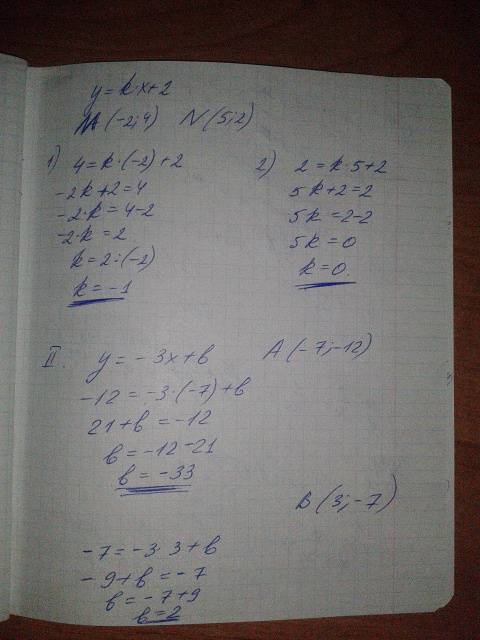 y = k·x+2
M (-2;4) N (5;2)
1) 4 = k·(-2)+2
-2k+2=4
-2·k = 4-2
-2·k = 2
k = 2:(-2)
k = -1
2) 2 = k·5+2
5k+2=2
5k = 2-2
5k = 0
k=0.
II. y = -3x+b A (-7;-12)
-12 = -3·(-7)+b
21+b = -12
b = -12-21
b = -33
B (3;-7)
-7 = -3·3+b
-9+b = -7
b = -7+9
b = 2